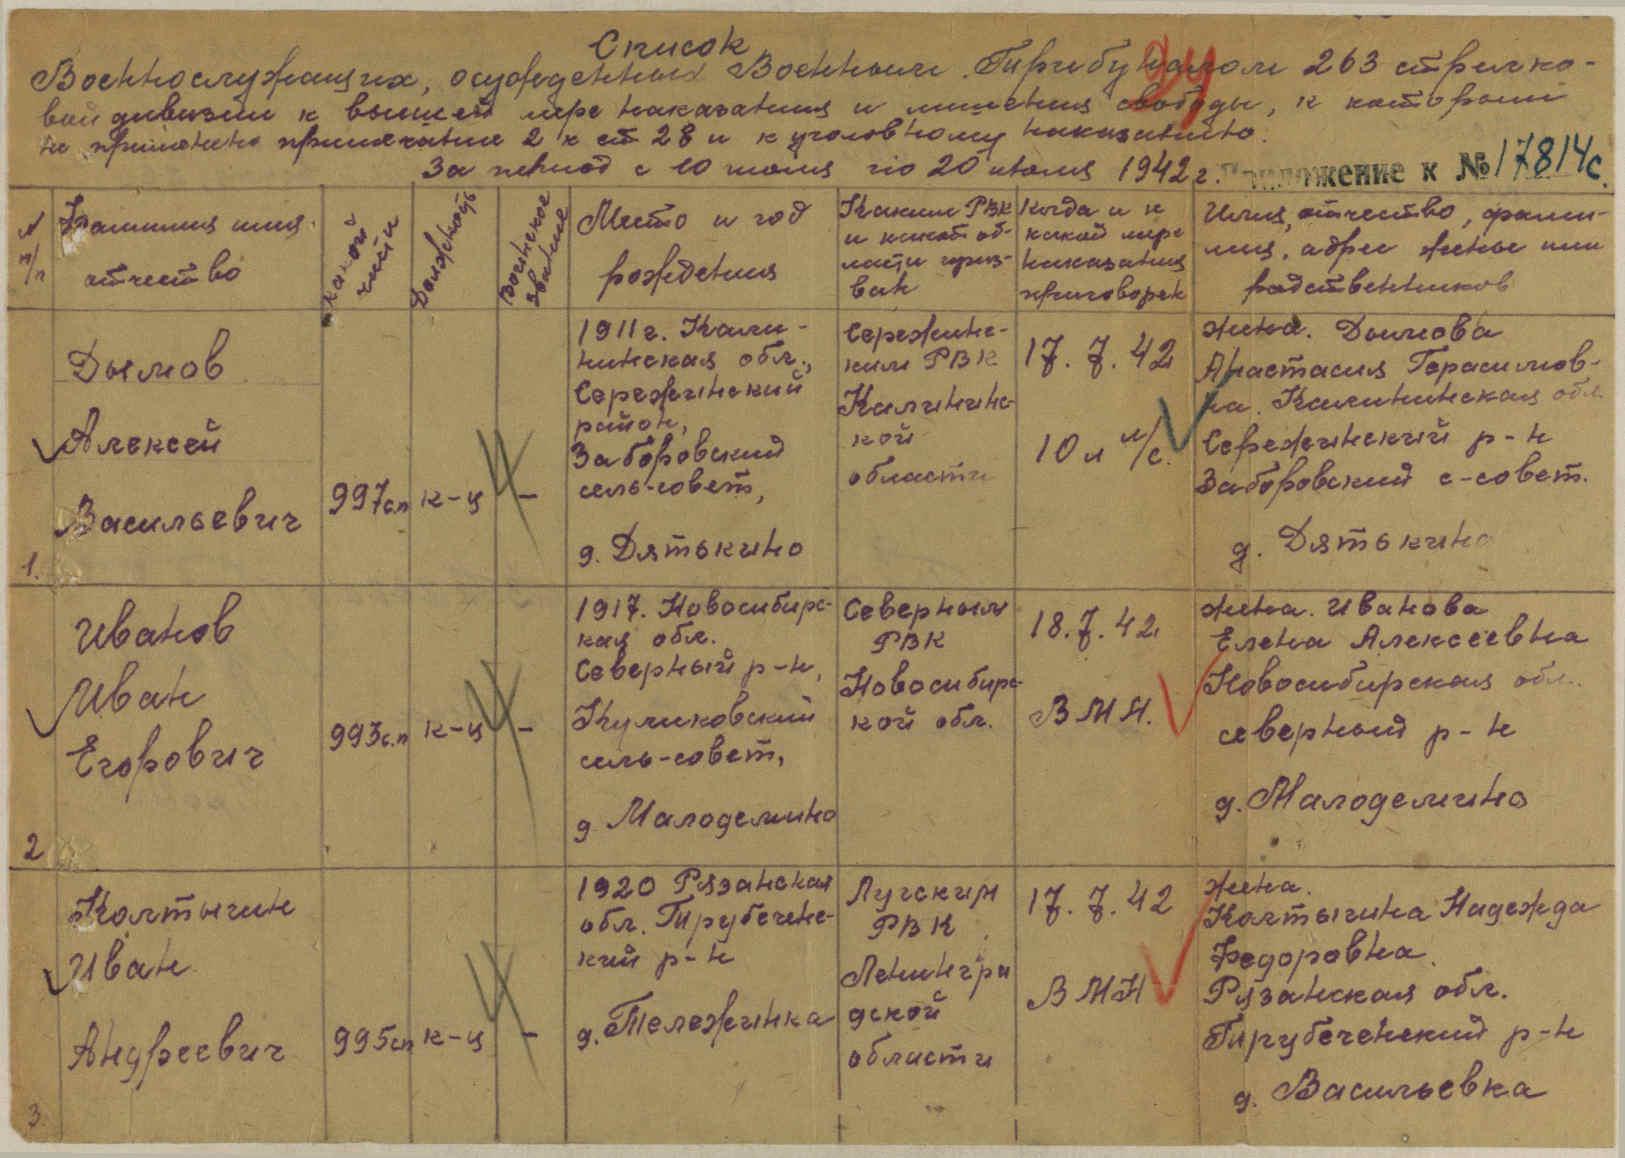 Список
Военнослужащих, осужденных Военным Трибуналом 263 стрелко-
вой дивизии к высшей мере наказания и лишения свободы, к которым
не применено примечание 2 к ст 28 и к уголовному наказанию.
За период с 10 июля по 20 июля 1942 г.
Приложение к № 17814с.
№ п/п
Фамилия имя
отчество
какой части
Должность
Воинское звание
Место и год
рождения
Каким РВК
и какой об-
ласти приз-
ван
Когда и к
какой мере
наказания
приговорен
Имя, отчество, фами-
лия, адрес жены или
родственников
1.
Дымов
Алексей
Васильевич
997сп
к-ц
–
1911г. Кали-
нинская обл.,
Сережинский
район,
Заборовский
сель-совет,
д. Дятькино
Сережинс-
ким РВК
Калининс-
кой
области
17.7.42
10 л л/с.
жена. Дымова
Анастасия Герасимов-
на. Калининская обл.
Сережинский р-н
Заборовский с-совет.
д. Дятькино
2
Иванов
Иван
Егорович
993с.п
к-ц
–
1917. Новосибирс-
кая обл.
Северный р-н,
Куликовский
сель-совет,
д Малоделино
Северным
РВК
Новосибирс-
кой обл.
18.7.42
ВМН.
жена. Иванова
Елена Алексеевна
Новосибирская обл.
северный р-н
д. Малоделино
3.
Колтыгин
Иван
Андреевич
995сп
к-ц
–
1920 Рязанская
обл. Трубеченс-
кий р-н
д. Тележинка
Лугским
РВК
Ленингра
дской
области
17.7.42
ВМН
жена.
Колтыгина Надежда
Федоровна.
Рязанская обл.
Трубеченский р-н
д. Васильевка